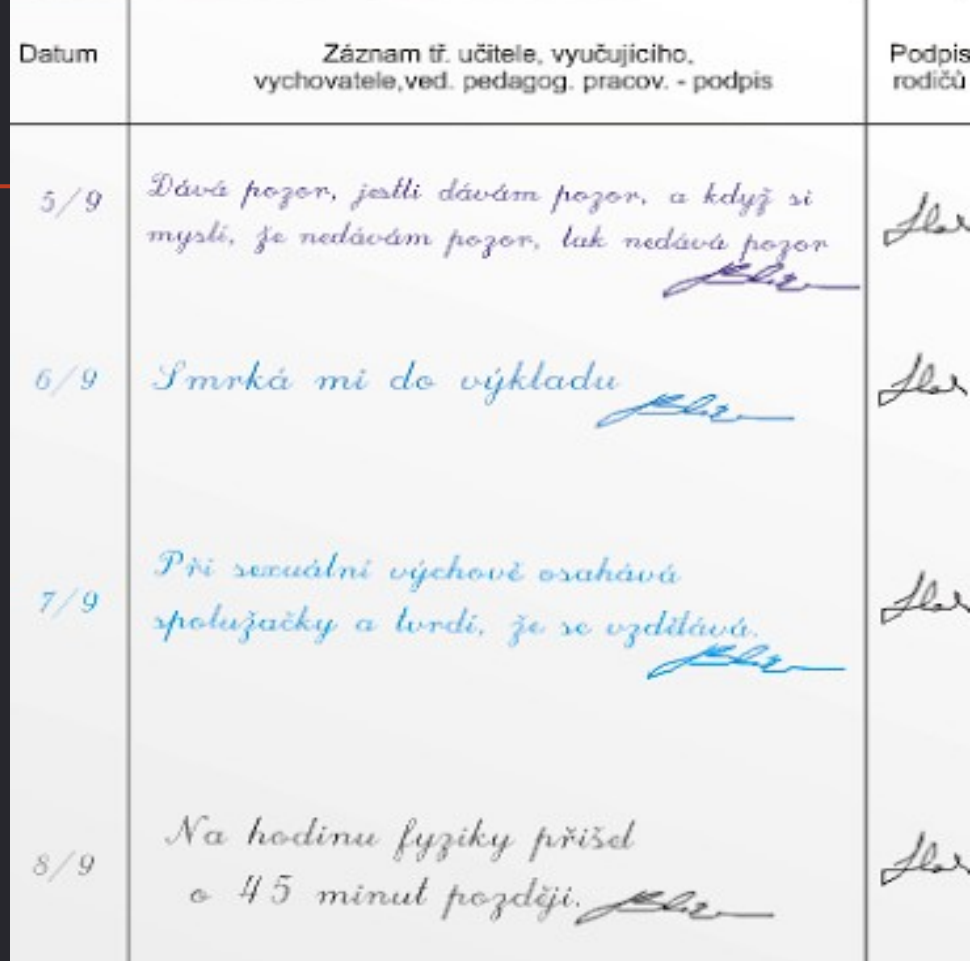 Datum
Záznam tř. učitele, vyučujícího,
vychovatele,ved. pedagog. pracov. - podpis
Podpis
rodičů
5/9
Dává pozor, jestli dávám pozor, a když si
myslí, že nedávám pozor, tak nedává pozor
6/9
Smrká mi do výkladu
7/9
Při sexuální výchově osahává
spolužačky a tvrdí, že se vzdělává.
8/9
Na hodinu fyziky přišel
o 45 minut později.